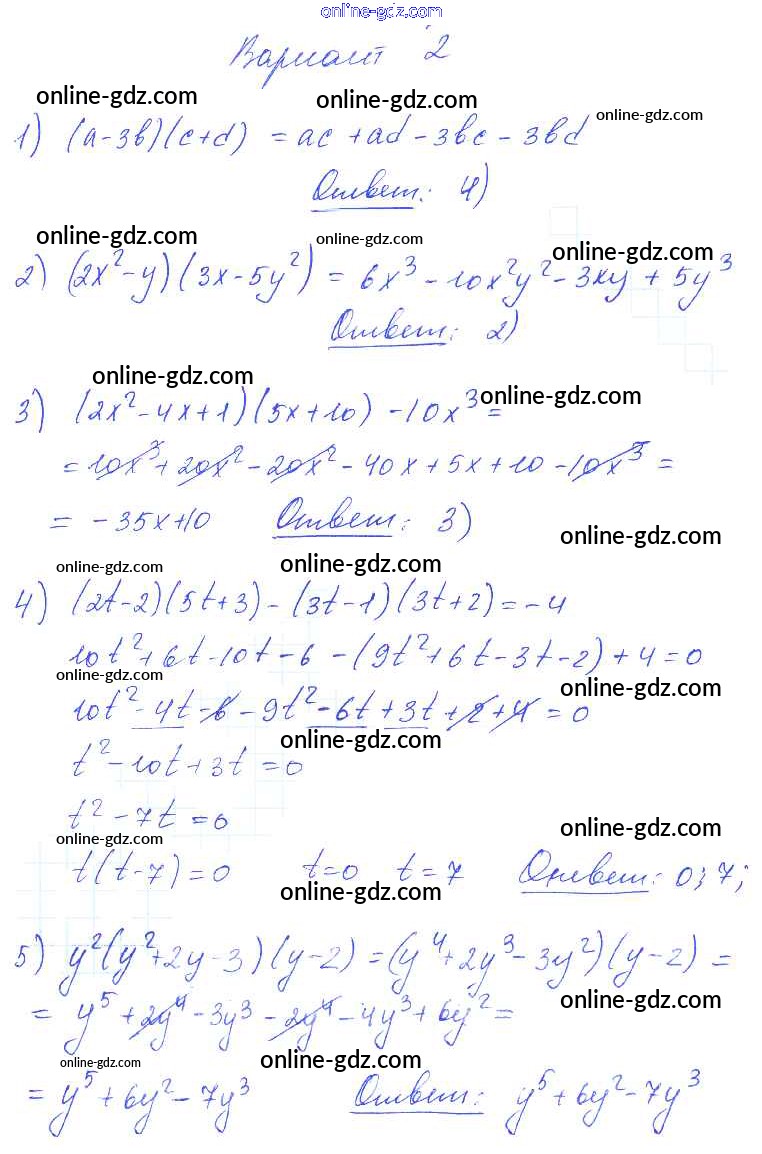 online-gdz.com
Вариант 2
online-gdz.com online-gdz.com online-gdz.com
1) (a-3b)(c+d) = ac + ad - 3bc - 3bd
Ответ: 4)
online-gdz.com online-gdz.com online-gdz.com
2) (2x²-y)(3x-5y²) = 6x³ - 10x²y² - 3xy + 5y³
Ответ: 2)
online-gdz.com online-gdz.com
3) (2x²-4x+1)(5x+10) - 10x³ =
= 10x³ + 20x² - 20x² - 40x + 5x + 10 - 10x³ =
= -35x+10 Ответ: 3)
online-gdz.com
online-gdz.com online-gdz.com
4) (2t-2)(5t+3) - (3t-1)(3t+2) = -4
10t² + 6t - 10t - 6 - (9t² + 6t - 3t - 2) + 4 = 0
online-gdz.com online-gdz.com
10t² - 4t - 6 - 9t² - 6t + 3t + 2 + 4 = 0
online-gdz.com
t² - 10t + 3t = 0
t² - 7t = 0
online-gdz.com online-gdz.com
t(t-7) = 0 t=0 t=7 Ответ: 0; 7;
online-gdz.com
5) y²(y²+2y-3)(y-2) = (y⁴+2y³-3y²)(y-2) =
online-gdz.com
= y⁵ + 2y⁴ - 3y³ - 2y⁴ - 4y³ + 6y² =
online-gdz.com online-gdz.com
= y⁵ + 6y² - 7y³ Ответ: y⁵ + 6y² - 7y³